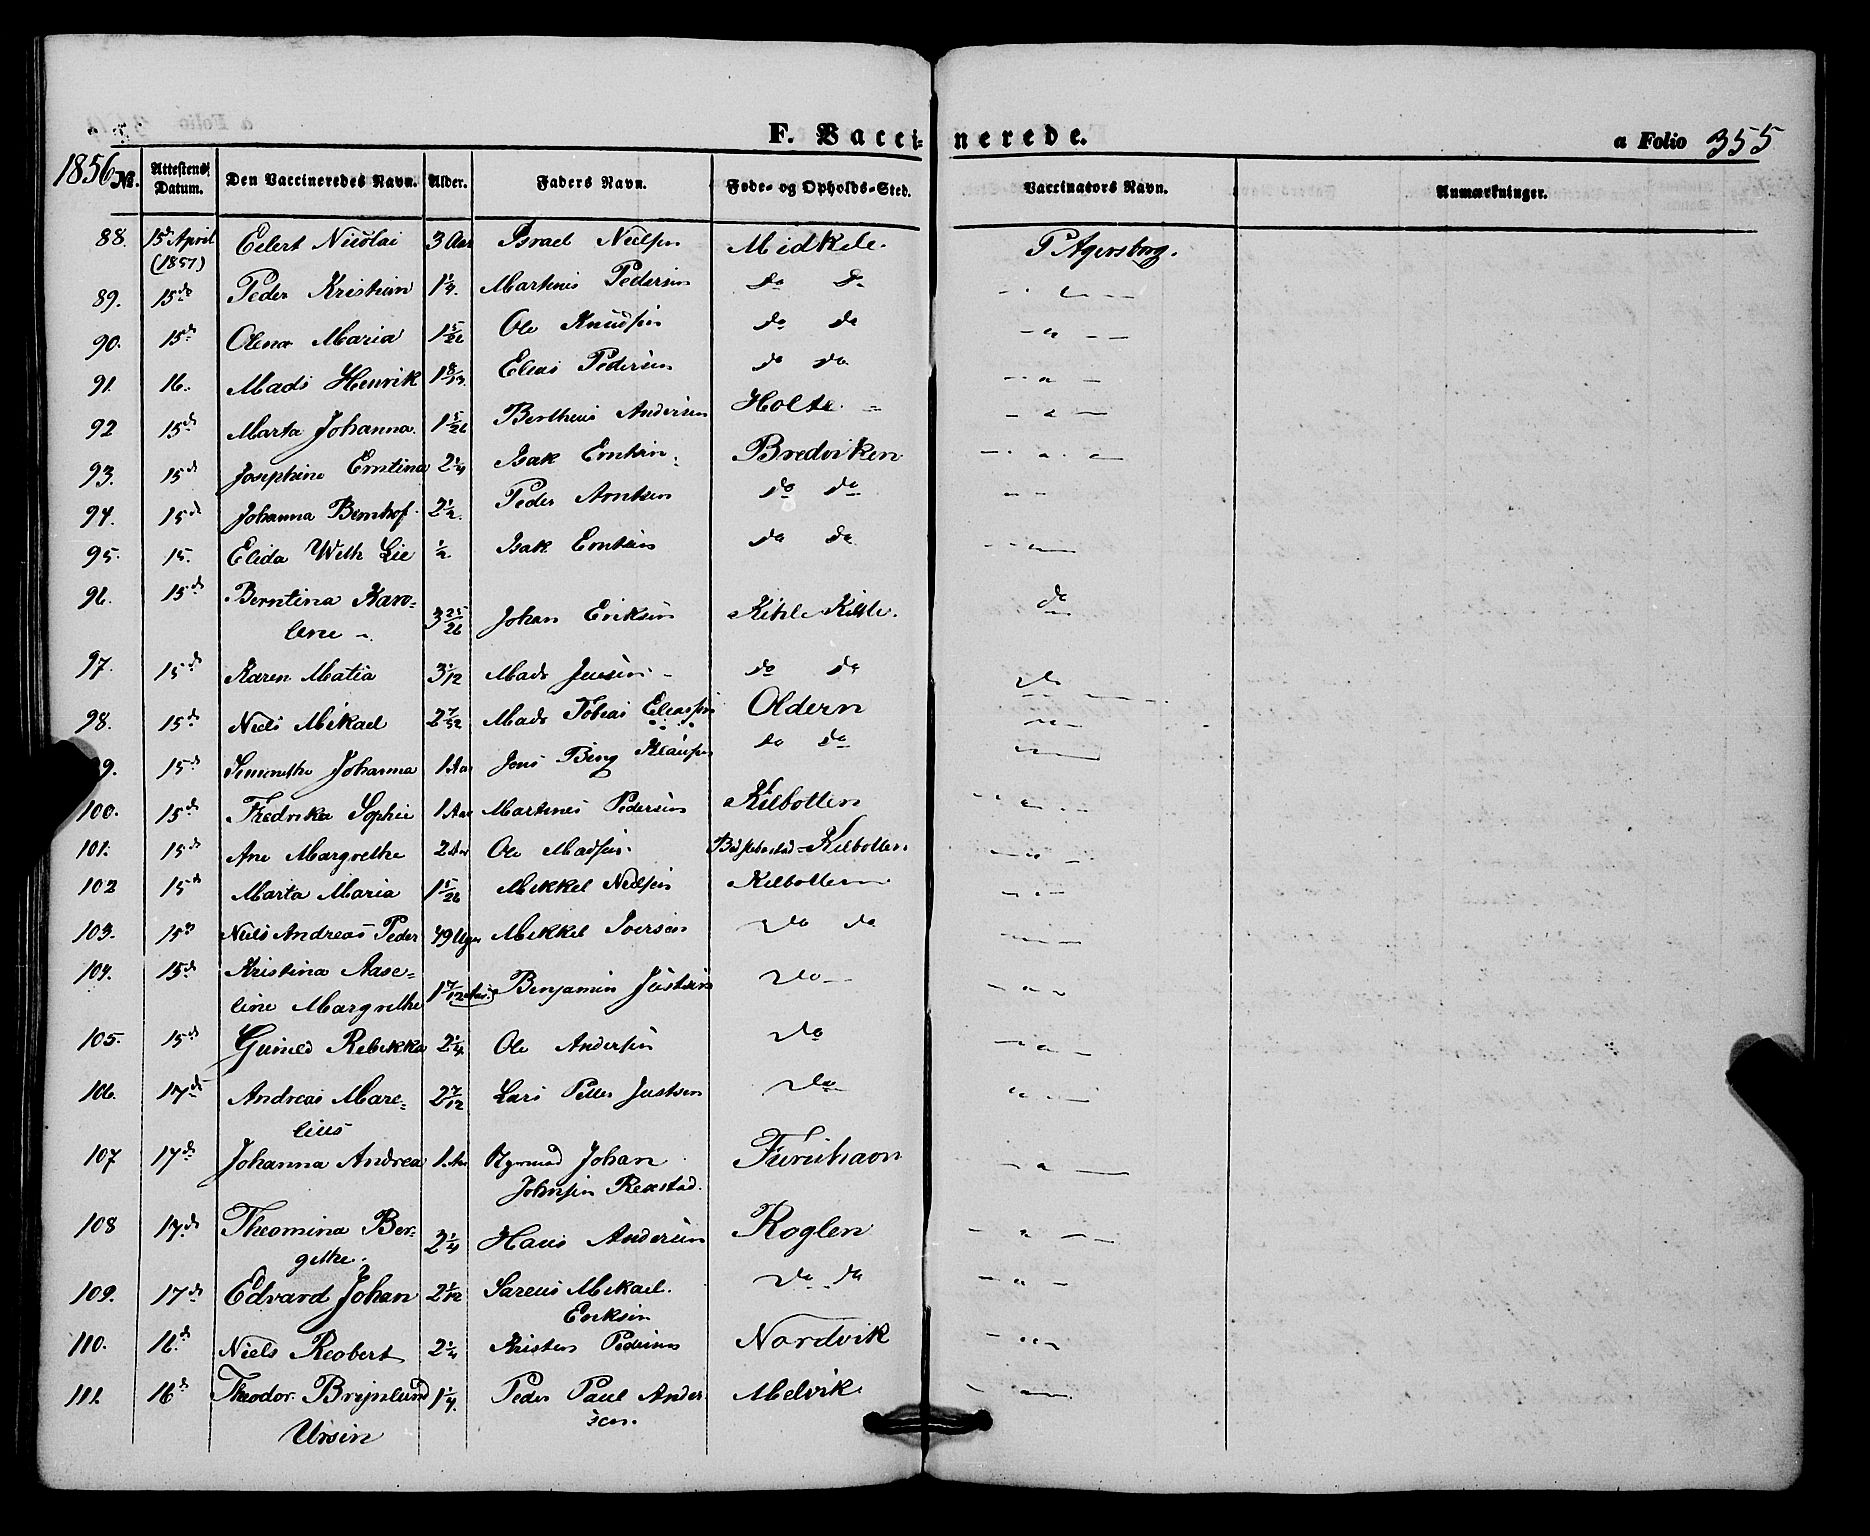 F. Vaccinerede.
a Folio 355
1856 No. Attestens Datum. Den Vaccineredes Navn. Alder. Faders Navn. Føde- og Opholds-Sted. Vaccinators Navn. Anmærkninger.
88. 15de April Eilert Nicolai 3 Aar Israel Nielsen Midkile. P Agersborg.
(1857)
89. 15de Peder Kristian 1 1/4. Martinus Pedersen do do
90. 15de Olena Maria 1 5/26 Ole Knudsen do do
91. 16. Mads Henrik 1 8/13. Elias Pedersen do do
92 15de Marta Johanna. 1 5/26 Bertheus Andersen Holte.
93. 15de Josephine Erntina 2 1/4 Isak Erntsen Bredviken
94. 15de Johanna Bernhof 2 1/2. Peder Arntsen do do
95. 15. Elida Wilh Lie 1/2 Isak Erntsen do do
96. 15de Berntina Karo-
lene 3 25/26 Johan Eriksen Kihle Kihle. do
97. 15de Karen Matia 3 1/12 Mads Jensen do do do
98. 15de Niels Mikael 2 7/52 Mads Tobias Eliassen Oldern
99. 15de Johanna 1 Aar Jens Bing Klausen do do
100. 15de Fredrika Sophie 1 Aar Martines Pedersen Kilbotten
101. 15de Ane Margrethe 2 Aar Ole Madsen. Kilbotten.
102 15de Marta Maria 1 5/26 Mikkel Nielsen Kilbotten
103. 15de Niels Andreas Peder 49 Uger Mikkel Iversen do do
104. 15de Kristina Aase-
line Margrethe 1 7/12 Aar. Benjamin Justsen do
105. 15de Rebekka 2 1/4 Ole Andersen do
106. 17de Andreas Mare-
lius 2 7/12 Lars Peter Justsen do
107 17de Johanna Andrea 1. Aar Johan Furuhavn
Johnsen Rexstad.
108 17de Theomina Ber-
gethe. 2 1/4 Hans Andersen Roglen
109. 17de Edvard Johan 2 1/12 Sareus Mikael. do do
Eriksen
110. 16.de Niels Reobert 2 1/4 Kristen Pedersen Nordvik
111. 16de Theodor Brynlund 1 1/4. Peder Paul Ander- Melvik.
Ursin sen.